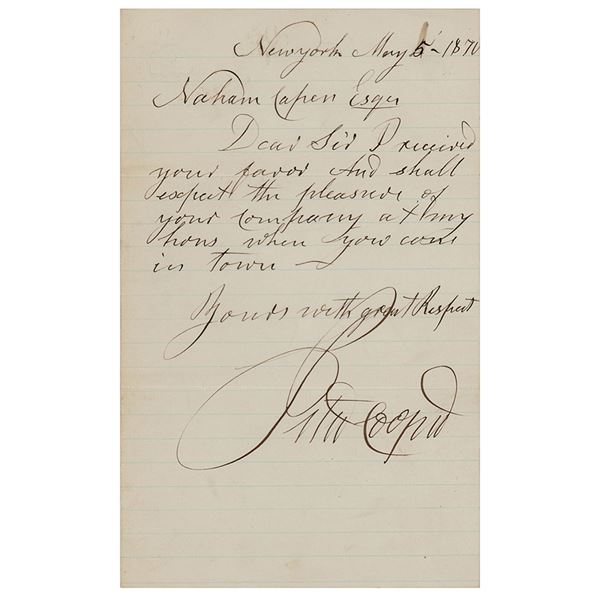 Newyork May 5 - 1870
Naham Capen Esqr
Dear Sir I received
your favor And shall
expect the pleasure of
your company at my
hous when you come
in town —
Yours with great Respect
Peter Cooper